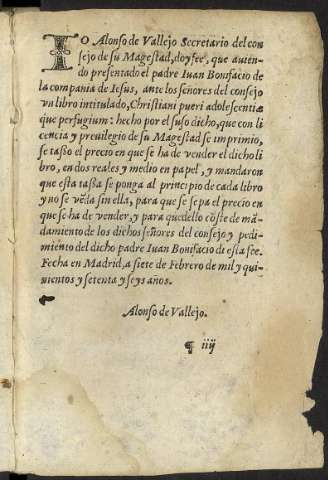 IO Alonso de Vallejo Secretario del con
sejo de su Magestad, doy fee, que auien-
do presentado el padre Iuan Bonifacio de
la compania de Iesus, ante los señores del consejo
vn libro intitulado, Christiani pueri adolescentiæ
que perfugium: hecho por el suso dicho, que con li
cencia y preuilegio de su Magestad se imprimio,
se tasso el precio en que se ha de vender el dicho li
bro, en dos reales y medio en papel, y mandaron
que esta tassa se ponga al principio de cada libro
y no se vẽda sin ella, para que se sepa el precio en
que se ha de vender, y para que dello cõste de mã-
damiento de los dichos señores del consejo y pedi-
miẽto del dicho padre Iuan Bonifacio di esta fee.
Fecha en Madrid, a siete de Febrero de mil y qui-
nientos y setenta y seys años.
Alonso de Vallejo.
¶ iiij